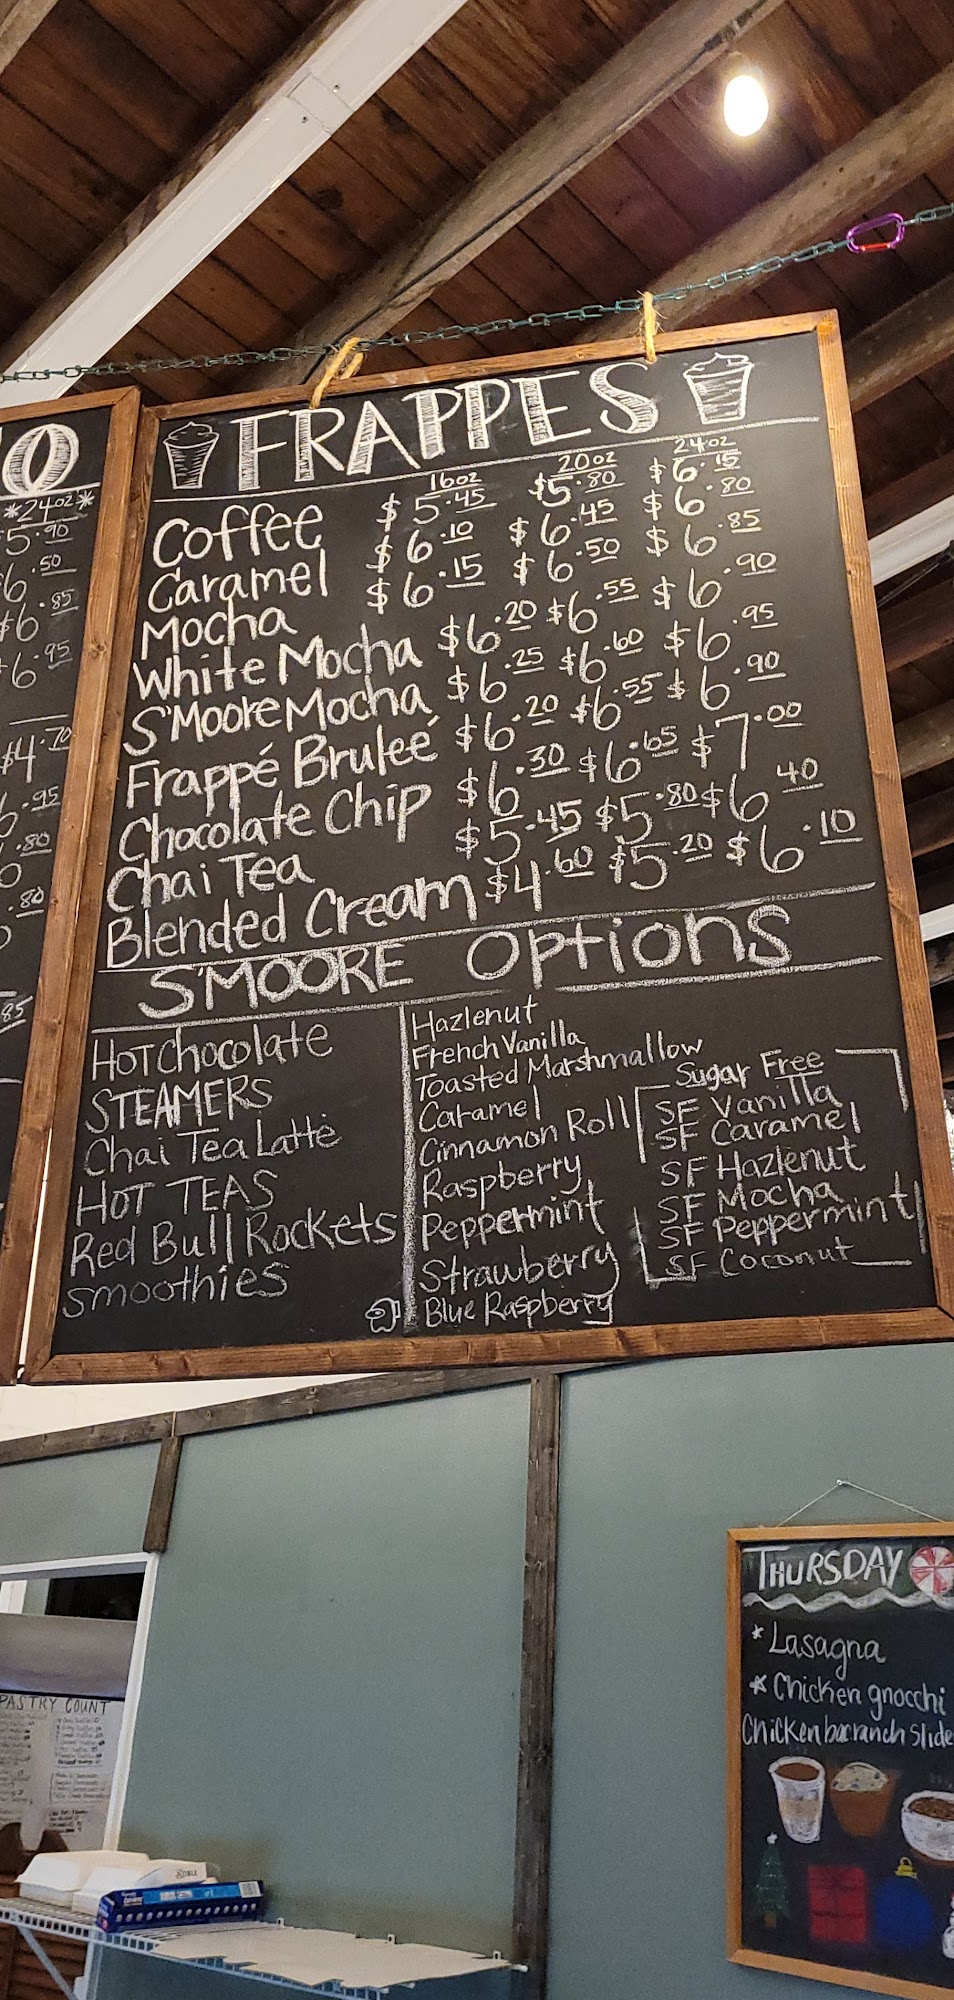 O
*24oz*
5.90
6.50
$6.85
$6.95
$4.70
6.95
.80
.80
.85
FRAPPES
16oz 20oz 24oz
Coffee $5.45 $5.80 $6.15
Caramel $6.10 $6.45 $6.80
Mocha $6.15 $6.50 $6.85
White Mocha $6.20 $6.55 $6.90
S'Moore Mocha $6.25 $6.60 $6.95
Frappé Bruleé $6.20 $6.55 $6.90
Chocolate Chip $6.30 $6.65 $7.00
Chai Tea $5.45 $5.80 $6.40
Blended Cream $4.60 $5.20 $6.10
S'MOORE Options
HOT Chocolate
STEAMERS
Chai Tea Latte
HOT TEAS
Red Bull Rockets
Smoothies
Hazlenut
French Vanilla
Toasted Marshmallow
Caramel
Cinnamon Roll
Raspberry
Peppermint
Strawberry
Blue Raspberry
Sugar Free
SF Vanilla
SF Caramel
SF Hazlenut
SF Mocha
SF Peppermint
SF Coconut
THURSDAY
* Lasagna
* Chicken gnocchi
Chicken bac ranch slide
PASTRY COUNT